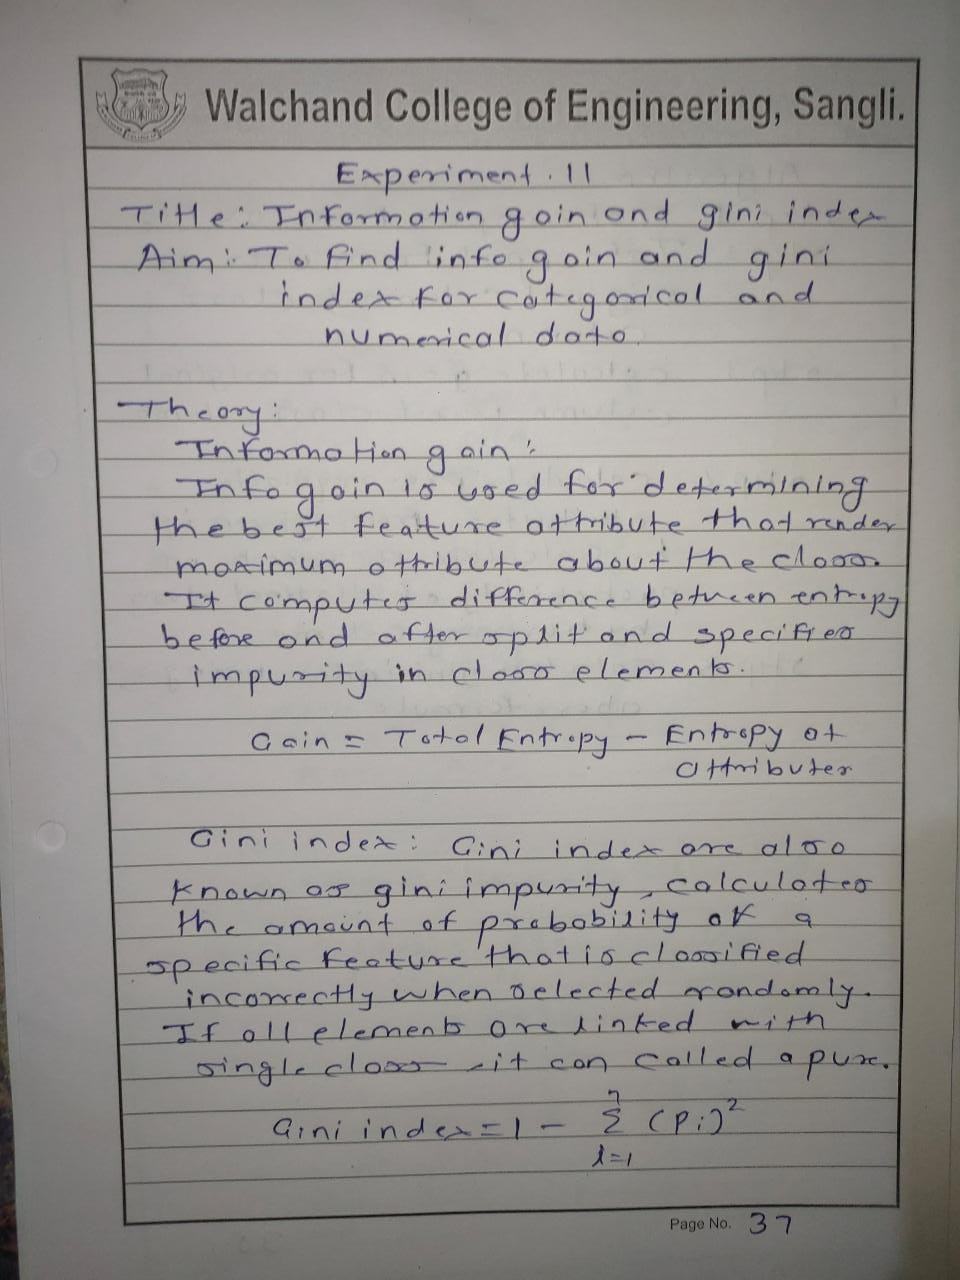 Walchand College of Engineering, Sangli.
Experiment. 11
Title: Information gain and gini index
Aim: To find info gain and gini
index for categorical and
numerical data.
Theory:
Information gain:
Info gain is used for determining
the best feature attribute that render
maximum attribute about the class.
It computes difference between entropy
before and after split and specifies
impurity in class elements.
Gain = Total Entropy - Entropy of
attributes
Gini index: Gini index are also
known as gini impurity, calculates
the amount of probability of a
specific feature that is classified
incorrectly when selected randomly.
If all elements are linked with
single class it can called a pure.
Gini index = 1 - n Σ i=1 (Pi)²
Page No. 37